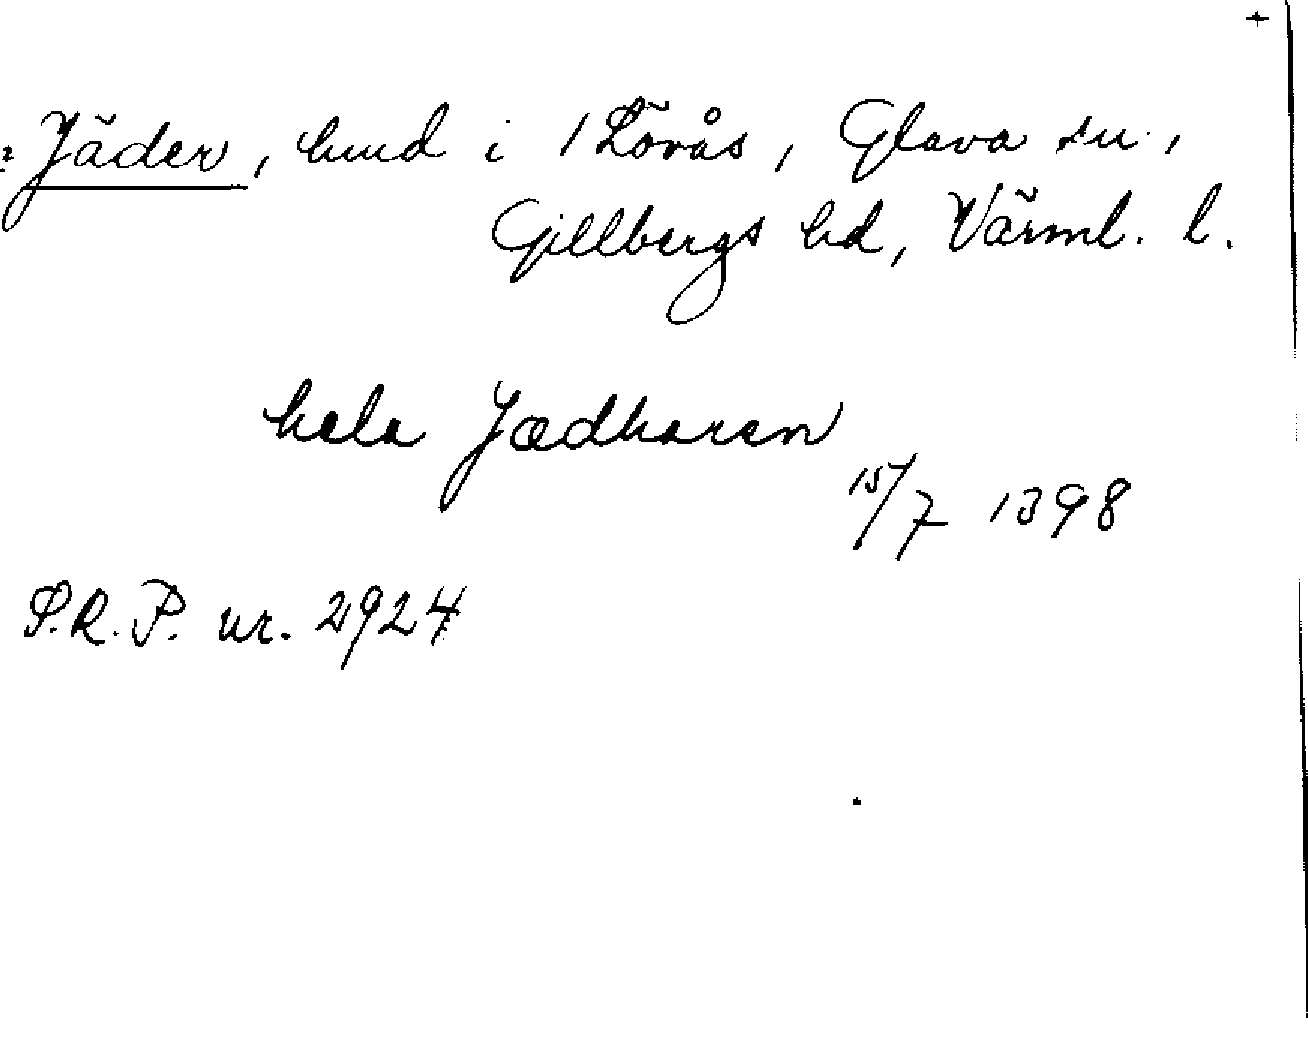 +
= Jäder, lund i 1 Lövås, Glava sn.,
Gillbergs hd, Värml. l.
hela Jædharen
15/7 1398
S.R.P. nr. 2924